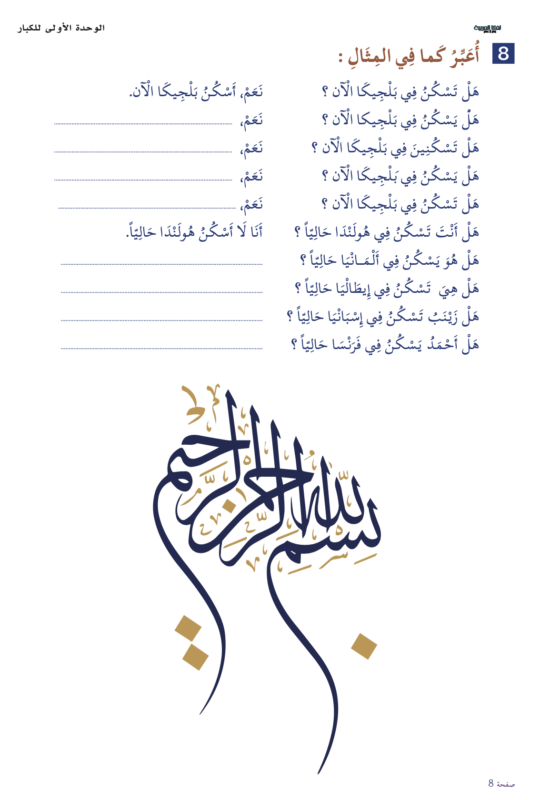 الوحدة الأولى للكبار
8 أُعَبِّرُ كَما فِي المِثَالِ :
هَلْ تَسْكُنُ فِي بَلْجِيكَا الْآن ؟ نَعَمْ، أَسْكُنُ بَلْجِيكَا الْآن.
هَلْ يَسْكُنُ فِي بَلْجِيكا الْآن ؟ نَعَمْ،
هَلْ تَسْكُنِينَ فِي بَلْجِيكَا الْآن ؟ نَعَمْ،
هَلْ يَسْكُنُ فِي بَلْجِيكَا الْآن ؟ نَعَمْ،
هَلْ تَسْكُنُ فِي بَلْجِيكَا الْآن ؟ نَعَمْ،
هَلْ أَنْتَ تَسْكُنُ فِي هُولَنْدَا حَالِيّاً ؟ أَنَا لَا أَسْكُنُ هُولَنْدَا حَالِيّاً.
هَلْ هُوَ يَسْكُنُ فِي أَلْمَـانْيَا حَالِيّاً ؟
هَلْ هِيَ تَسْكُنُ فِي إِيطَالْيَا حَالِيّاً ؟
هَلْ زَيْنَبُ تَسْكُنُ فِي إِسْبَانْيَا حَالِيّاً ؟
هَلْ أَحْمَدُ يَسْكُنُ فِي فَرَنْسَا حَالِيّاً ؟
بِسْمِ اللهِ الرَّحْمنِ الرَّحِيمِ
صفحة 8